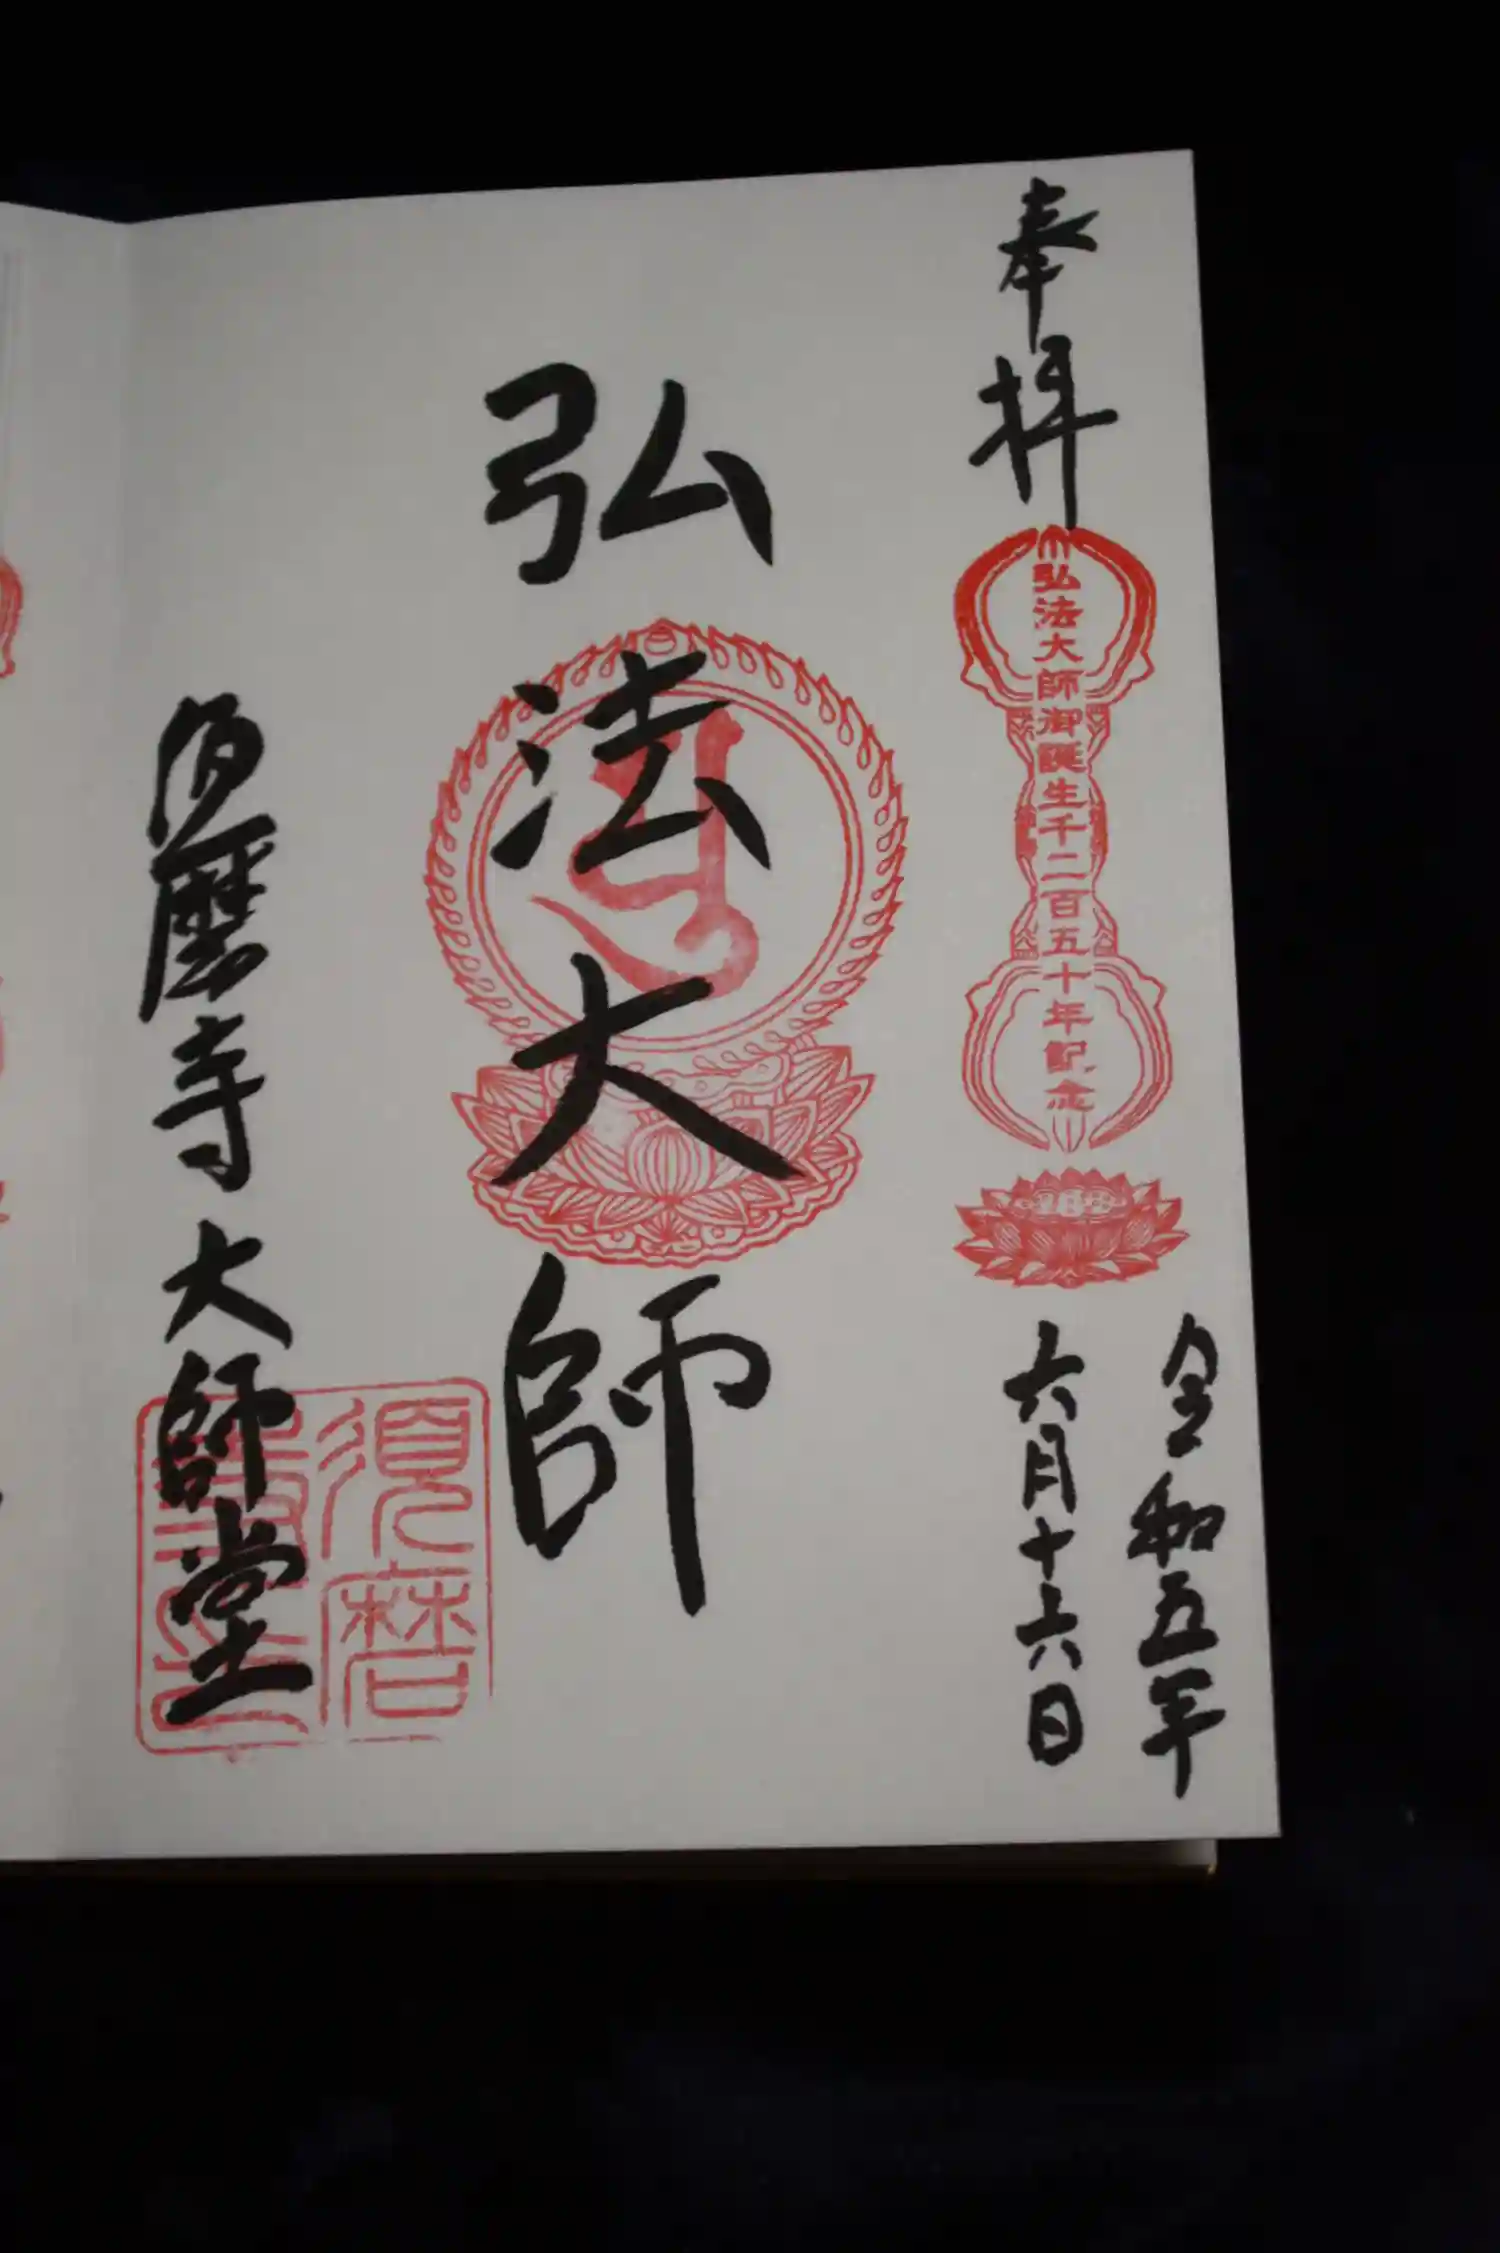 奉拝
弘法大師御誕生千二百五十年記念
令和五年
六月十六日
弘法大師
須磨寺大師堂
須磨